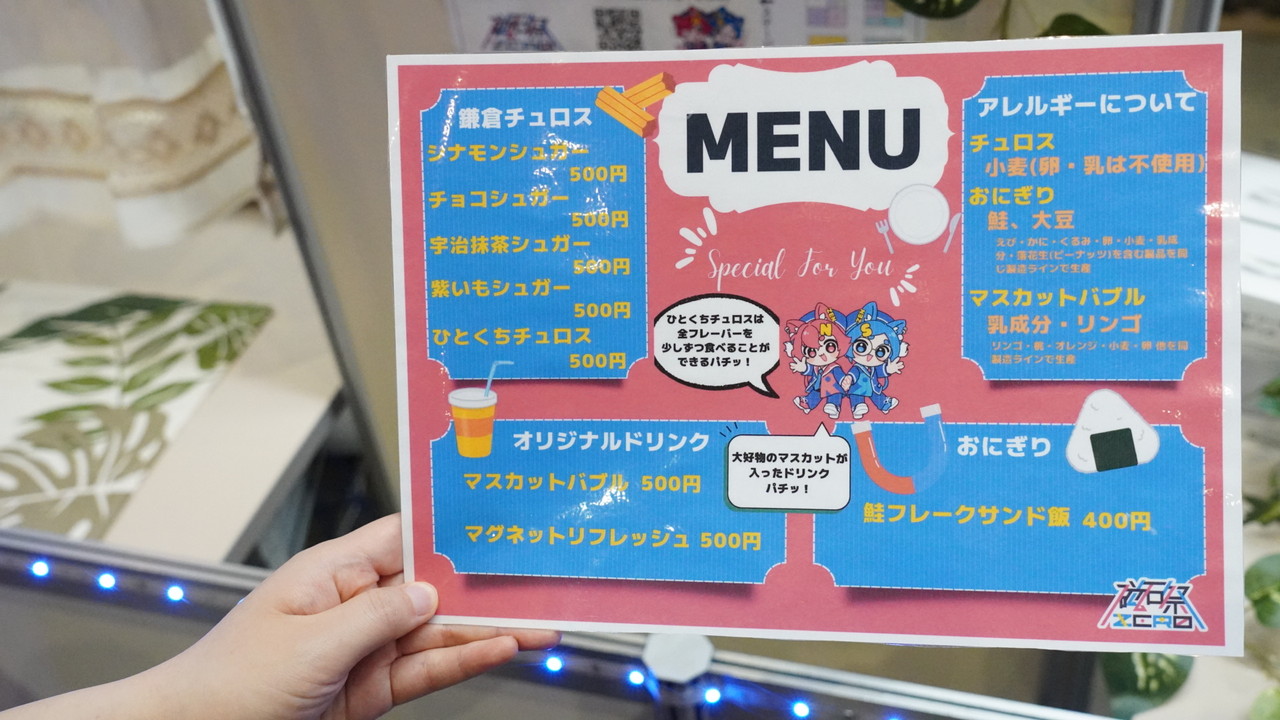 MENU
Special For You
鎌倉チュロス
シナモンシュガー
500円
チョコシュガー
500円
宇治抹茶シュガー
500円
紫いもシュガー
500円
ひとくちチュロス
500円
ひとくちチュロスは
全フレーバーを
少しずつ食べることが
できるパチッ！
N S
アレルギーについて
チュロス
小麦(卵・乳は不使用)
おにぎり
鮭、大豆
えび・かに・くるみ・卵・小麦・乳成
分・落花生(ピーナッツ)を含む製品を同
じ製造ラインで生産
マスカットバブル
乳成分・リンゴ
リンゴ・桃・オレンジ・小麦・卵 他を同
製造ラインで生産
オリジナルドリンク
マスカットバブル 500円
マグネットリフレッシュ 500円
大好物のマスカットが
入ったドリンク
パチッ！
おにぎり
鮭フレークサンド飯 400円
磁石祭
ZERO